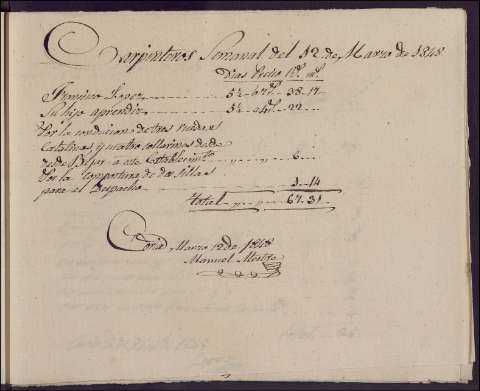 Carpinteros Semanal del 12 de Marzo de 1848
Dias Precio Rs. ms.
Francisco 5½ á 7 rs. 38 .. 17
Su hijo aprendiz 5½ á 4 rs. 22 ..
Por la conducion de tres ruedas
Catalinas, y cuatro collarinos de
desde a este Establecimto. 6 ..
Por la compostura de dos sillas
para el Despacho 1 .. 14
Total 67 .. 31
Coria Marzo 12 de 1848
Manuel